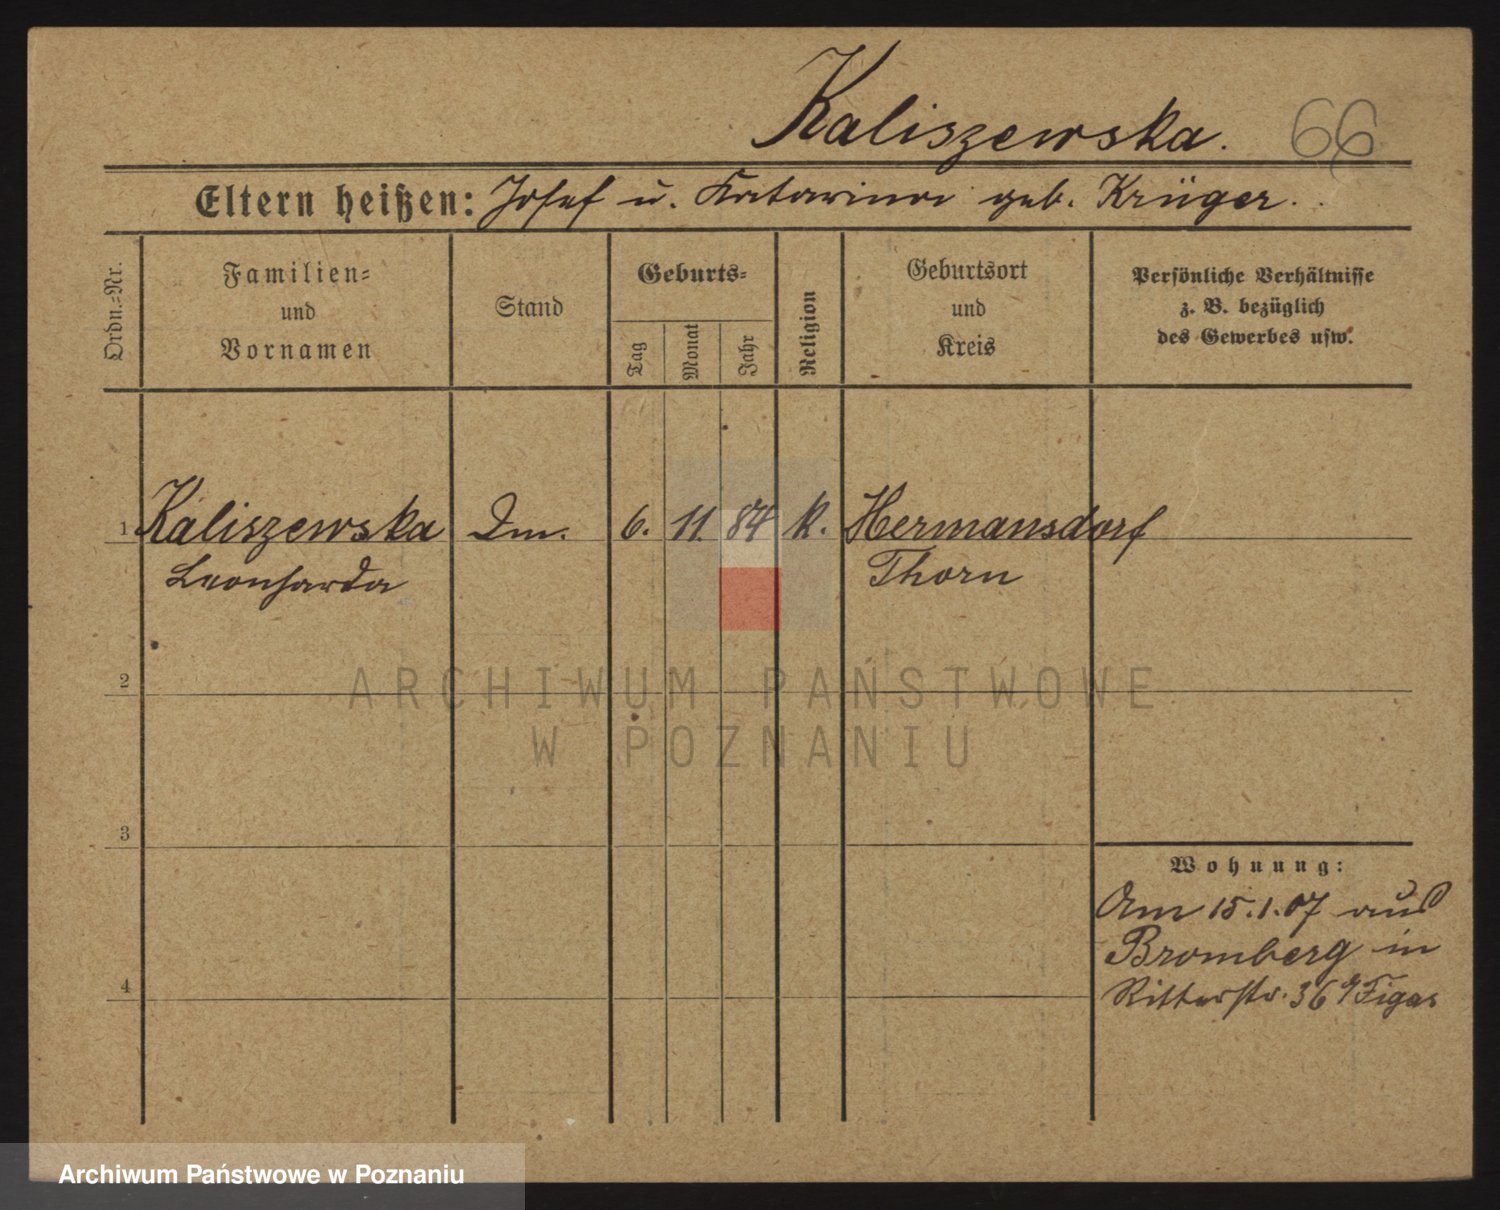 Kaliszewska. 66
Eltern heißen: Josef u. Katarina geb. Krüger.
Ordn.-Nr.
Familien-
und
Vornamen
Stand
Geburts-
Tag
Monat
Jahr
Religion
Geburtsort
und
Kreis
Persönliche Verhältnisse
z. B. bezüglich
des Gewerbes usw.
1 Kaliszewska Dm. 6. 11. 84 k. Hermansdorf
Leonharda Thorn
2
ARCHIWUM PAŃSTWOWE
W POZNANIU
3
Wohnung:
Am 15.1.07 aus
Bromberg in
4
Ritterstr. 36 Figas
Archiwum Państwowe w Poznaniu